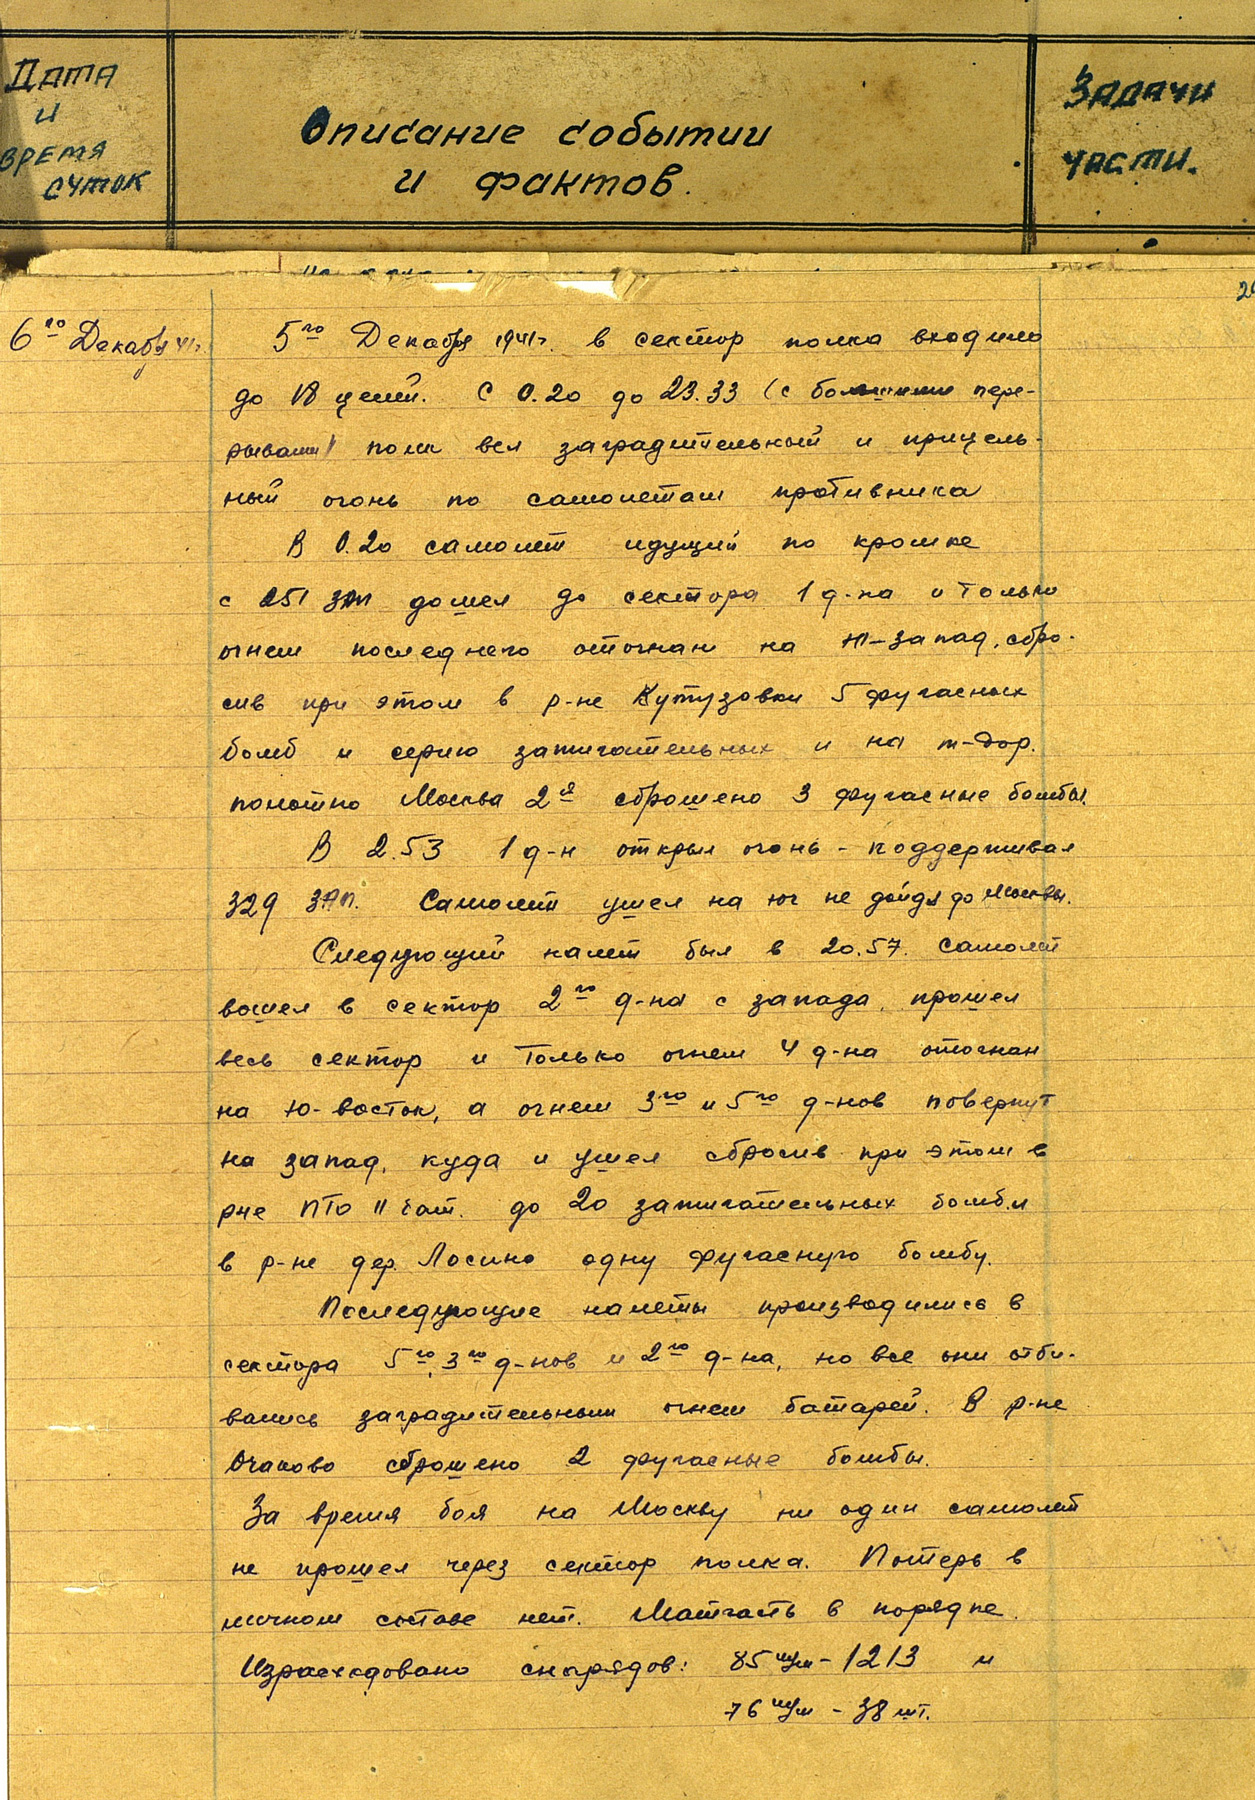 Дата
и
время
суток
Описание событии
и фактов.
Задачи
части.
6го Декабря 41г.
5го Декабря 1941г. в сектор полка входило
до 18 целей. С 0.20 до 23.33 (с большими пере-
рывами) полк вел заградительный и прицель-
ный огонь по самолетам противника
В 0.20 самолет идущий по кромке
с 251 ЗАП дошел до сектора 1 д-на и только
огнем последнего отогнан на Ю-запад, сбро-
сив при этом в р-не Кутузовки 5 фугасных
бомб и серию зажигательных и на ж-дор.
полотно Москва 2я сброшено 3 фугасные бомбы.
В 2.53 1 д-н открыл огонь - поддерживал
329 ЗАП. Самолет ушел на юг не дойдя до Москвы.
Следующий налет был в 20.57. Самолет
вошел в сектор 2го д-на с запада, прошел
весь сектор и только огнем 4 д-на отогнан
на Ю-восток, а огнем 3го и 5го д-нов повернут
на запад, куда и ушел сбросив при этом в
рне ПТО 11 бат. до 20 зажигательных бомб и
в р-не дер. Лосино одну фугасную бомбу.
Последующие налеты производились в
сектора 5го, 3го д-нов и 2го д-на, но все они отби-
вались заградительным огнем батарей. В р-не
Очаково сброшено 2 фугасные бомбы.
За время боя на Москву ни один самолет
не прошел через сектор полка. Потерь в
личном составе нет. Матчасть в порядке.
Израсходовано снарядов: 85 м/м - 1213 и
76 м/м - 38 шт.